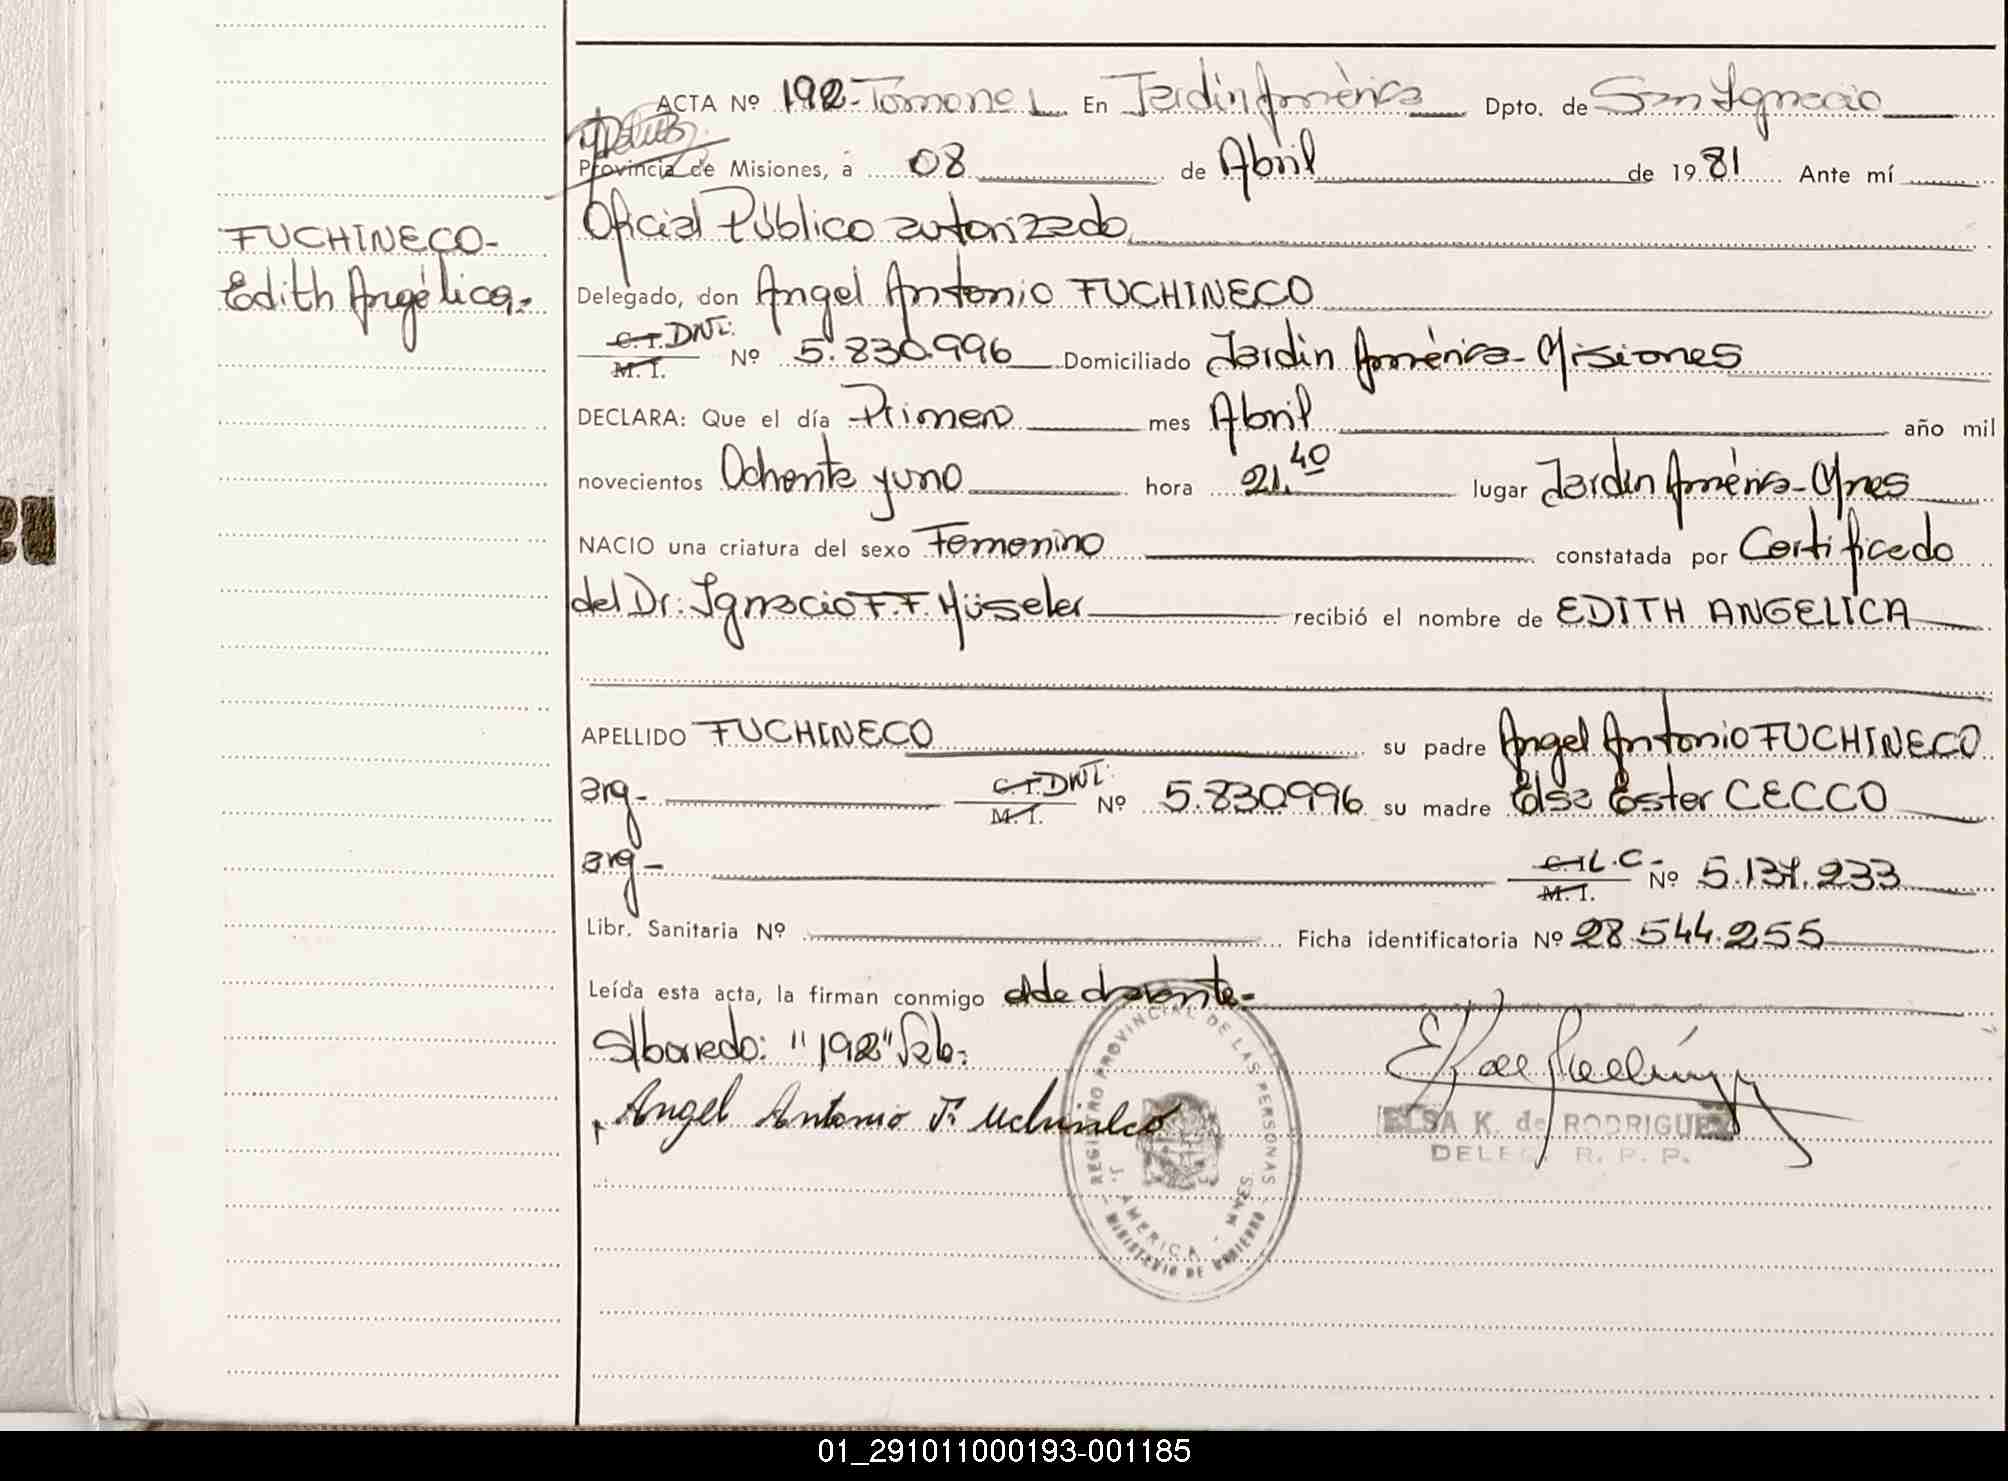 ACTA Nº 192-Tomo no 1 En Jardín América Dpto. de San Ignacio
Provincia de Misiones, a 08 de Abril de 1981 Ante mí
Oficial Público autorizado
FUCHINECO-
Edith Angélica.-
Delegado, don Angel Antonio FUCHINECO
C.I. DNI:
M. I. Nº 5.830.996 Domiciliado Jardín América-Misiones
DECLARA: Que el día Primero mes Abril año mil
novecientos Ochenta y uno hora 21.40 lugar Jardín América-Mnes
NACIO una criatura del sexo Femenino constatada por Certificado
del Dr: Ignacio F.F. Müseler recibió el nombre de EDITH ANGELICA
APELLIDO FUCHINECO su padre Angel Antonio FUCHINECO
arg- C.I. DNI: M. I. Nº 5.830996 su madre Elsa Ester CECCO
arg- C.I. L.C.- M. I. Nº 5.137.233
Libr. Sanitaria Nº Ficha identificatoria Nº 28.544.255
Leída esta acta, la firman conmigo el declarante-
Sborrado: "192" Vale:
Angel Antonio Fuchineco
ELSA K. de RODRIGUEZ
DELEG. R. P. P.
REGISTRO PROVINCIAL DE LAS PERSONAS
J. AMERICA - MNES.
MINISTERIO DE GOBIERNO
01_291011000193-001185